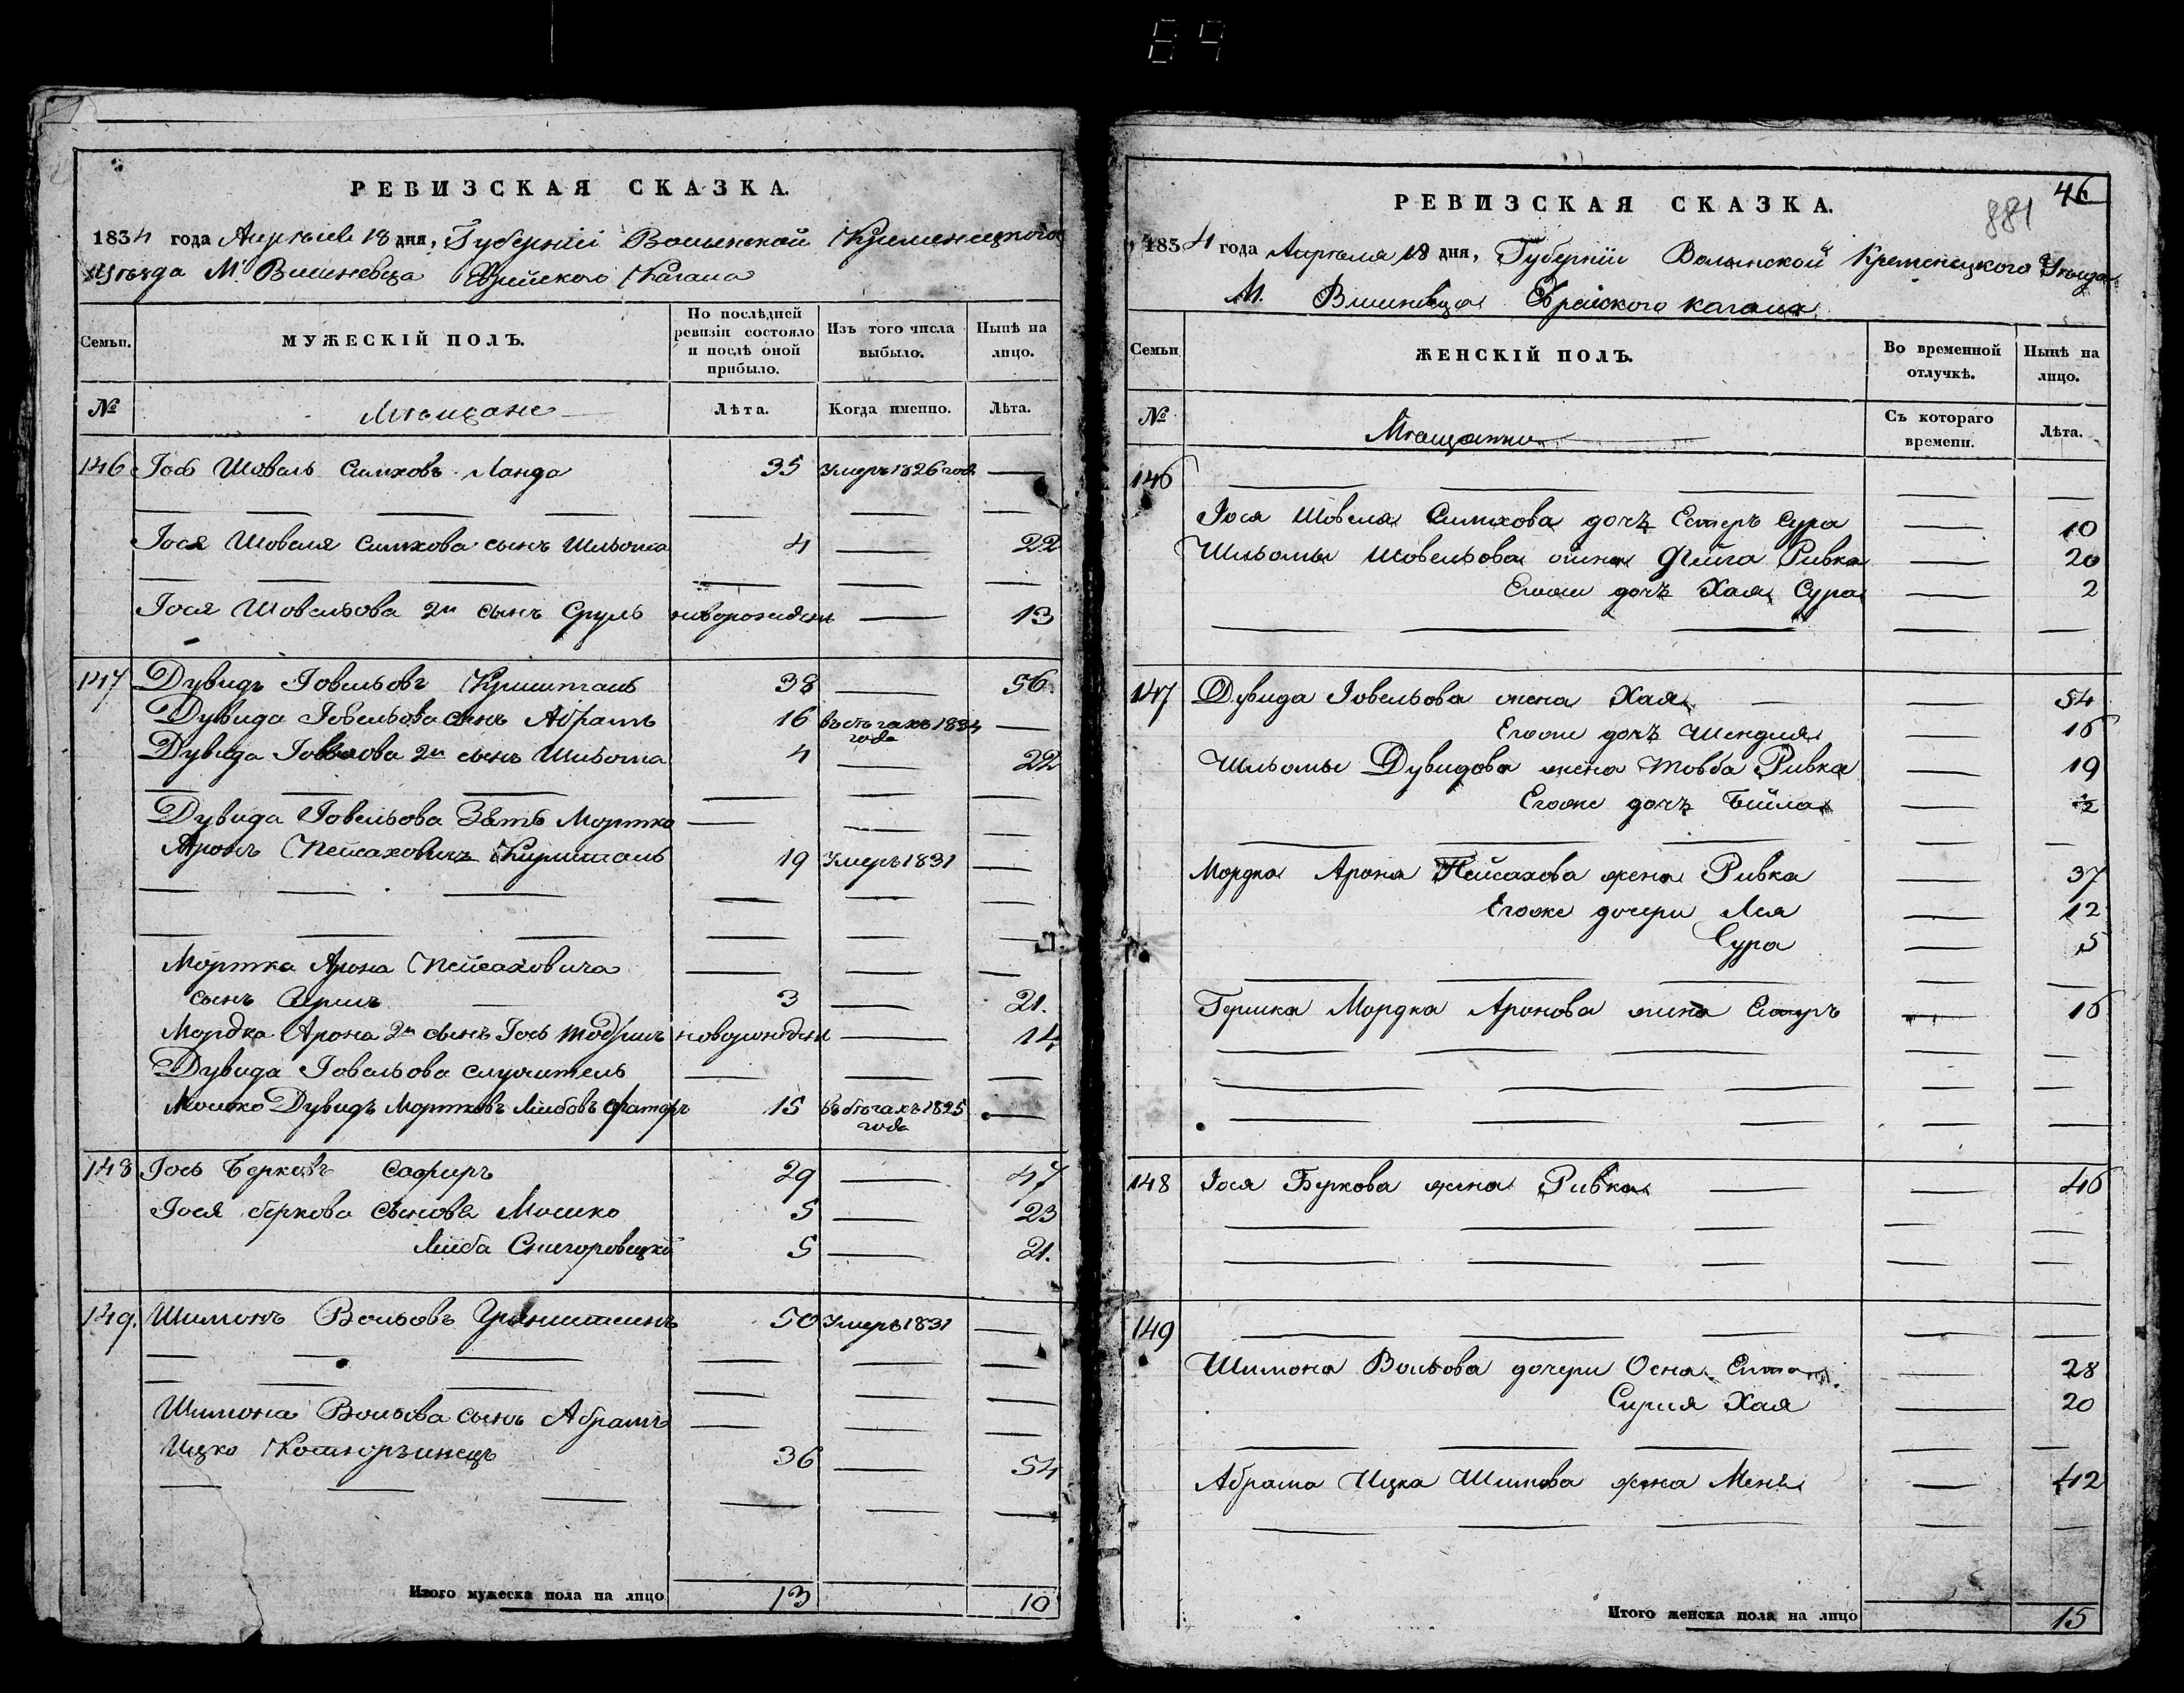 89
РЕВИЗСКАЯ СКАЗКА.
1834 года Апреля 18 дня, Губернїи Волынской Кременецкого
Уѣзда М. Вишневца Еврейского Кагала
Семьи.
МУЖЕСКІЙ ПОЛЪ.
По послѣдней ревизіи состояло и послѣ оной прибыло.
Изъ того числа выбыло.
Нынѣ на лицо.
№
Мѣщане
Лѣта.
Когда именно.
Лѣта.
146 Іось Шовель Симховъ Ланда 35 Умеръ 1826 год —
Іося Шовеля Симхова сынъ Шльома 4 — 22
Іося Шовельова 2й сынъ Сруль новорожден — 13
147 Дувидъ Іовельовъ 38 — 56.
Дувида Іовельова сынъ Абрамъ 16 въ бѣгахъ 1834 года —
Дувида Іовельова 2й сынъ Шльома 4 — 22
Дувида Іовельова Зять Мортко — — —
Аронъ Пейсаховичъ 19 Умеръ 1831 —
Мортка Арона Пейсаховича — — —
сынъ Гершъ 3 — 21.
Мордка Арона 2й сынъ Іось новорожден — 14
Дувида Іовельова служитель — — —
Мошко Дувидъ Мортковъ Лейбовъ 15 въ бѣгахъ 1825 года —
148 Іось Берковъ Сафиръ 29 — 47
Іося Беркова сыновя Мошко 5 — 23
Лейба 5 — 21.
149. Шимонъ Вольовъ 50 Умеръ 1831 —
Шимона Вольова сынъ Абрамъ — — —
Ицко 36 — 54
Итого мужеска пола на лицо 13 10
46
881
РЕВИЗСКАЯ СКАЗКА.
1834 года Апреля 18 дня, Губернїи Волынской Кременецкого Уѣзда
М. Вишневца Еврейского кагала
Семьи
ЖЕНСКІЙ ПОЛЪ.
Во временной отлучкѣ.
Нынѣ на лицо.
№
Мѣщанки
Съ котораго времени.
Лѣта.
146
Іося Шовеля Симхова дочъ Естеръ Сура — 10
Шльомы Шовельова жена Фейга Ривка — 20
Егоже дочъ Хая Сура — 2
147 Дувида Іовельова жена Хая — 54
Егоже дочъ Шендля — 16
Шльомы Дувидова жена Товба Ривка — 19
Егоже дочъ Бейла — 2
Мордка Арона Пейсахова жена Ривка — 37
Егоже дочери Лея — 12
Сура — 5
Гершка Мордка Аронова жена Естеръ — 16
148 Іося Беркова жена Ривка — 46
149
Шимона Вольова дочери Осна — 28
Сирля Хая — 20
Абрама Ицка Шимова жена Меня — 42
Итого женска пола на лицо 15